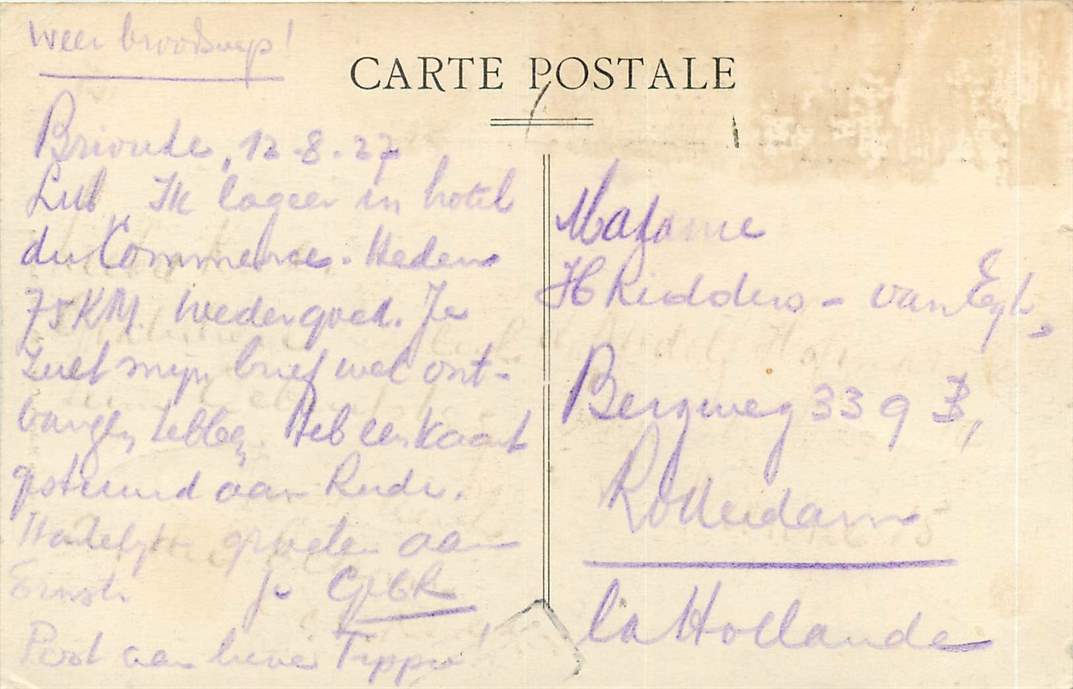 Weer
CARTE POSTALE
Brioude, 12-8-27
Ik logeer in hotel
du Commerce. Heden
75 KM. Je
zult mijn brief wel ont-
vangen hebben. Heb een kaart
gestuurd aan Rudi.
Hartelijke groeten aan
Ernst. Je
Poot aan
Madame
H Ridders - van Eyk,
Bergweg 339 B,
Rotterdam
la Hollande